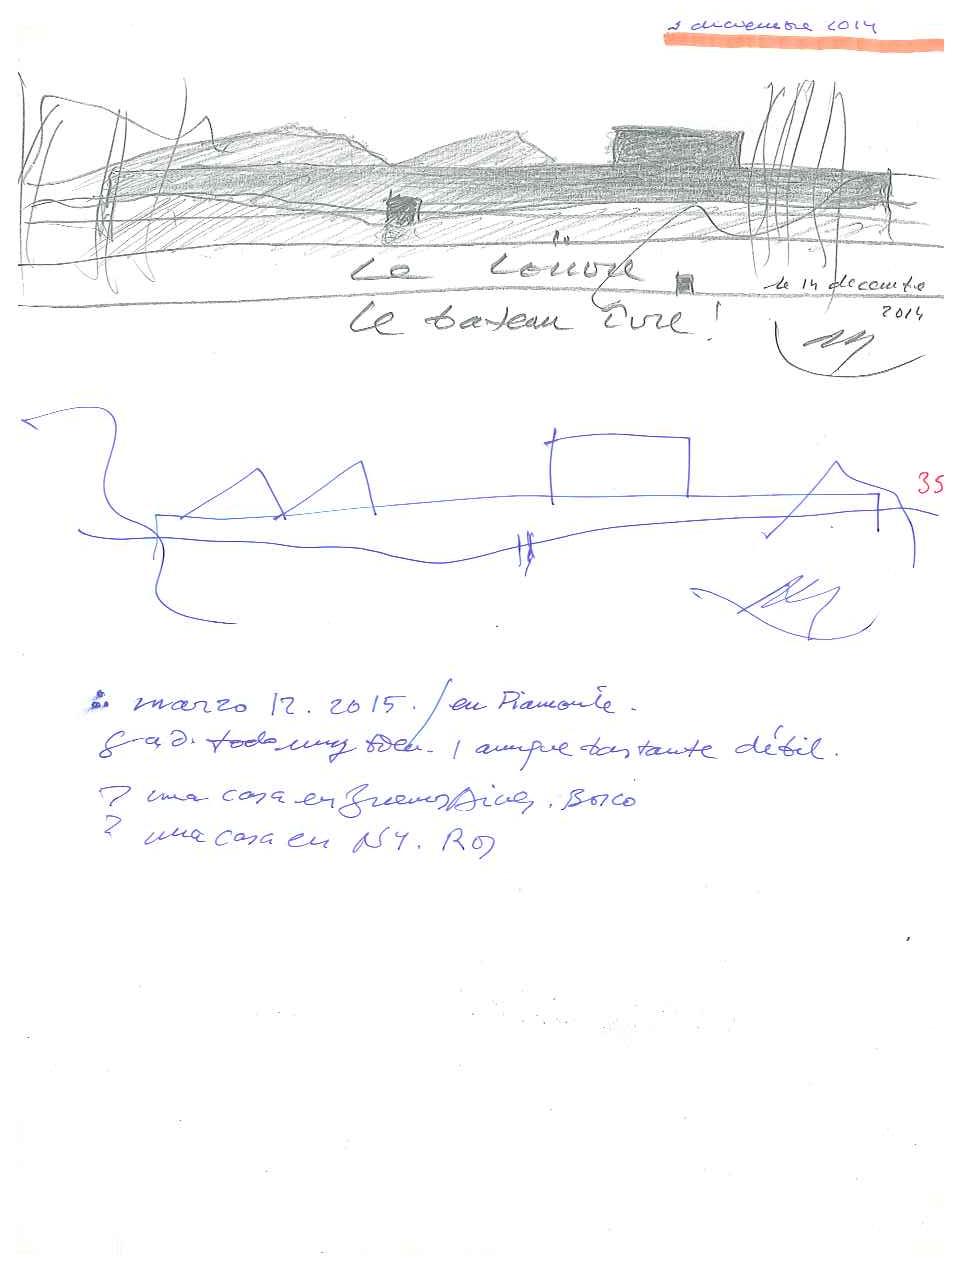 diciembre 2014
Le Louvre
le 14 decembre
2014
Le bateau ivre!
35
marzo 12. 2015. / en Piamonte.
todo muy bien. / aunque bastante débil.
? una casa en Buenos Aires. Bosco
? una casa en NY. Ros